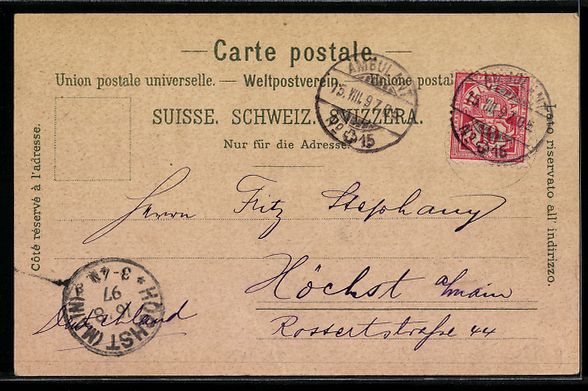 Carte postale.
Union postale universelle. — Weltpostverein. — Unione postale
SUISSE. SCHWEIZ. SVIZZERA.
Nur für die Adresse.
Côté réservé à l'adresse.
Lato riservato all' indirizzo.
AMBULANT
No 15
AMBULANT
No 15
Herrn Fritz Stephany
Höchst a/main
Rossertstraße 44
Deutschland
HÖCHST (MAIN)
16 8
97
3-4N